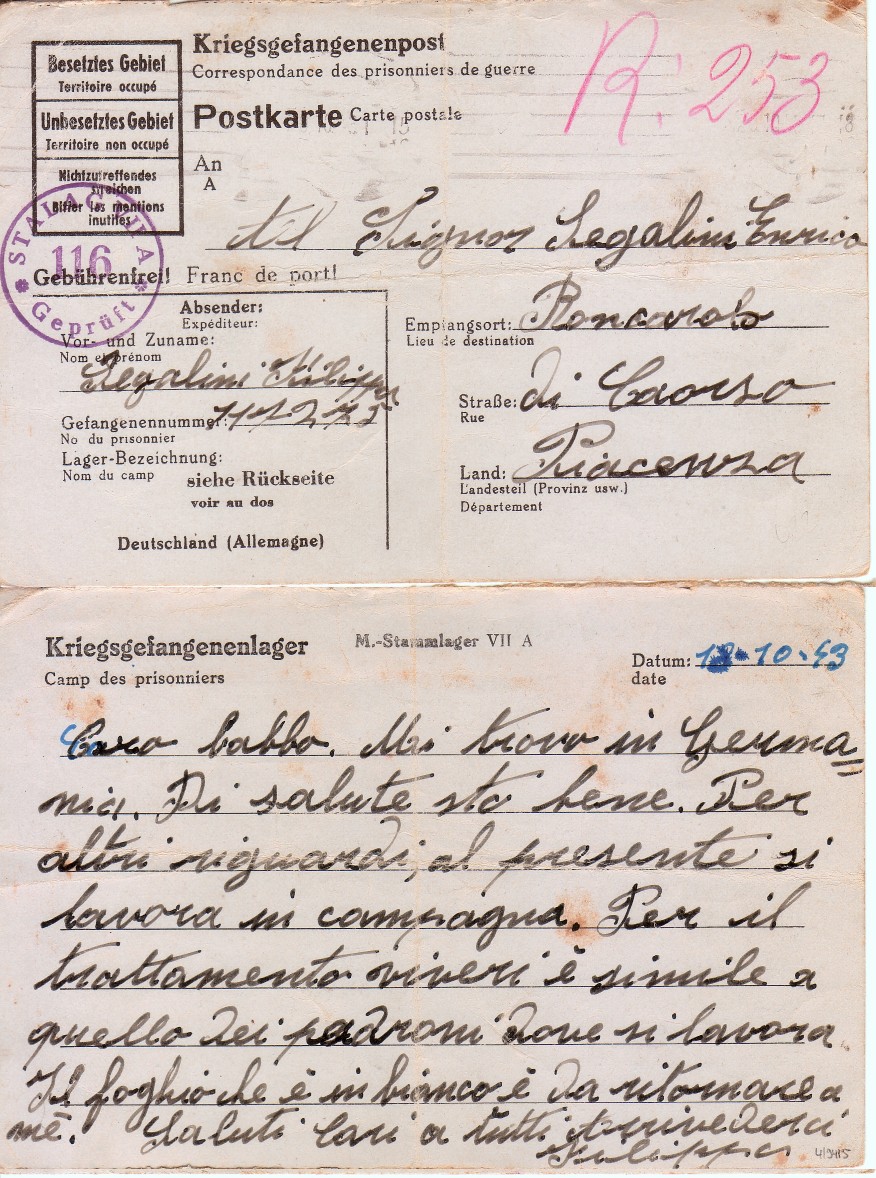 Besetztes Gebiet
Territoire occupé
Unbesetztes Gebiet
Territoire non occupé
Nichtzutreffendes
streichen
Biffer les mentions
inutiles
Kriegsgefangenenpost
Correspondance des prisonniers de guerre
Postkarte Carte postale
R. 253
An
A
Al Signor Segalini Enrico
STALAG VII A
116
Geprüft
Gebührenfrei! Franc de port!
Absender:
Expéditeur:
Vor- und Zuname:
Nom et prénom
Segalini Filippo
Gefangenennummer:
No du prisonnier
Lager-Bezeichnung:
Nom du camp
siehe Rückseite
voir au dos
Deutschland (Allemagne)
Empfangsort: Roncarolo
Lieu de destination
Straße: di Caorso
Rue
Land: Piacenza
Landesteil (Provinz usw.)
Département
Kriegsgefangenenlager
Camp des prisonniers
M.-Stammlager VII A
Datum: 10-43
date
Caro babbo. Mi trovo in Germa=
nia. Di salute sto bene. Per
altri riguardi, al presente si
lavora in campagna. Per il
trattamento viveri è simile a
quello dei padroni dove si lavora
Il foghio che è in bianco è da ritornare a
mè. Saluti Cari a tutti Arrivederci
Filippo
4/9415